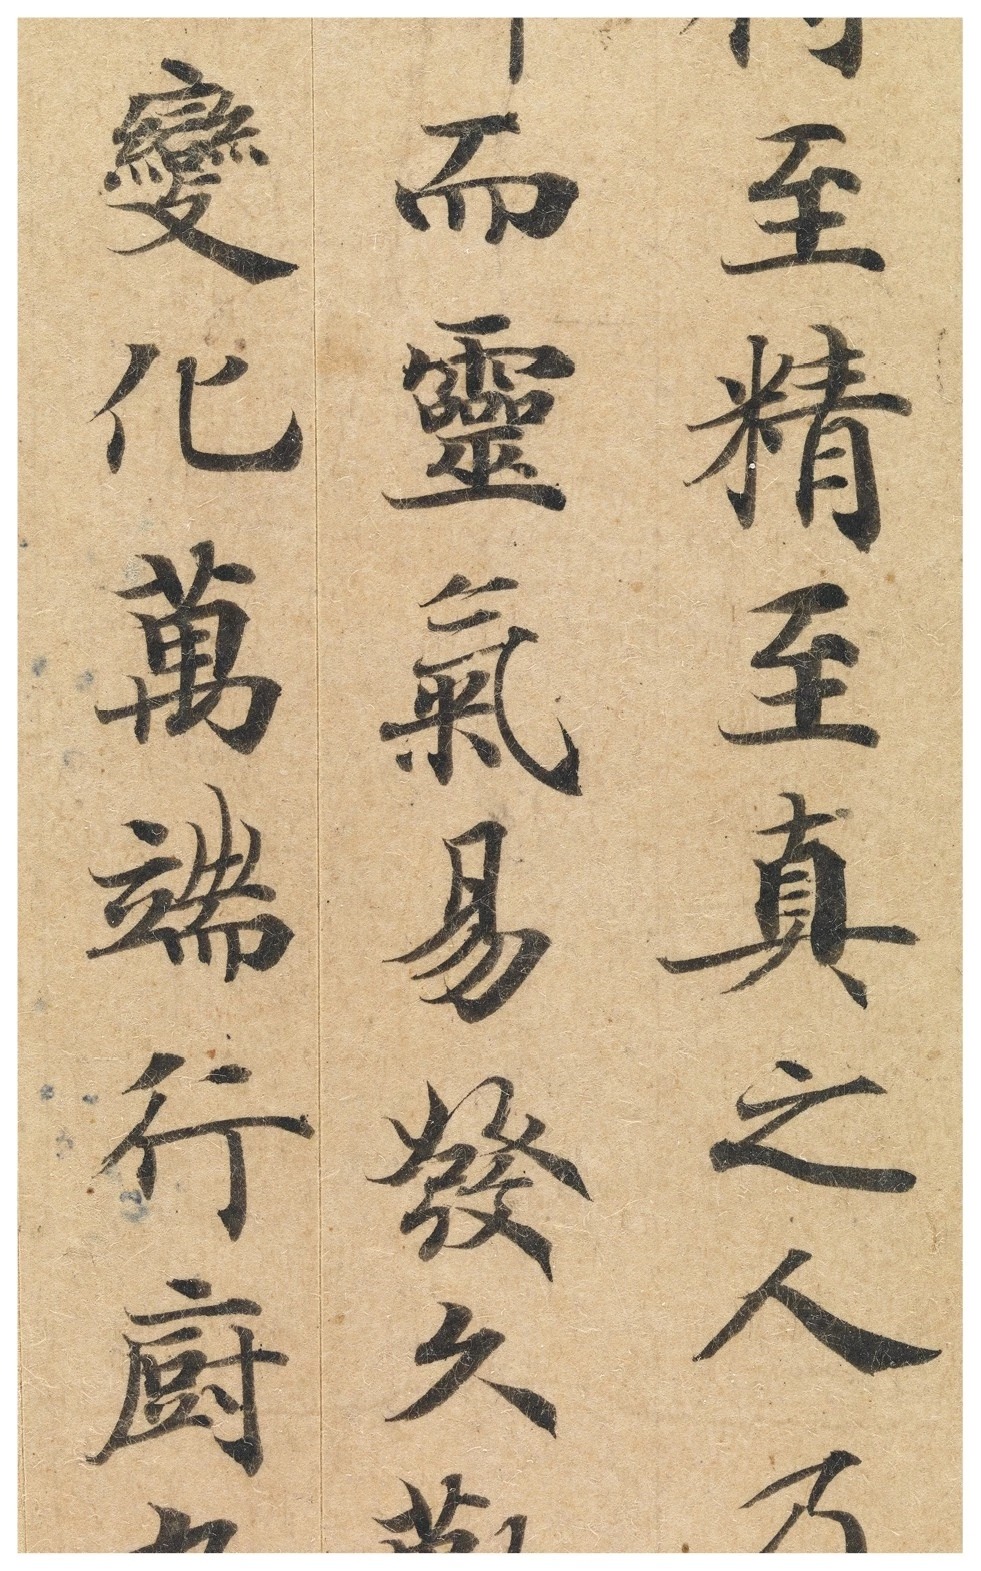 至精至真之人乃
而靈氣易發久勤
變化萬端行廚